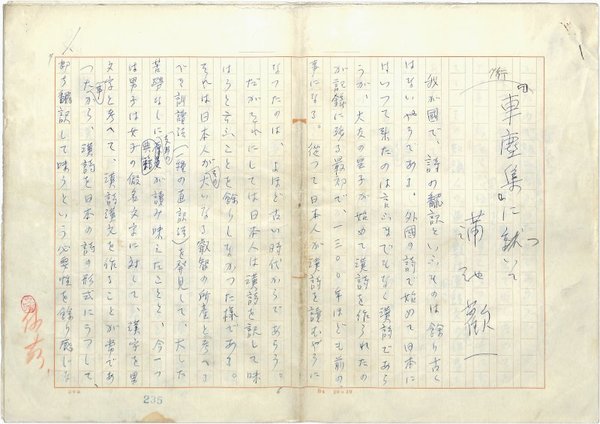 『車塵集』に就いて
蒲池歓一
我が国で、詩の翻訳といふものは餘り古く
はないやうである。外國の詩で始めて日本に
はいつて来たのは言ふまでもなく漢詩であら
うが、大友の皇子が始めて漢詩を作られたの
が記録に残る最初で、一三〇〇年ほども前の
事になる。従つて日本人が漢詩を読むやうに
なつたのは、よほど古い時代からであらう。
だがそれにしては日本人は漢詩を訳して味
はうと云ふことを餘りしなかつた様である。
それは日本人が大いなる叡智の所産と考へ
でも訓読法（一種の直訳法）を発見して、大した
苦労なしに が読み味へたことと、今一つ
は男子は女子の假名文字に対して、漢字を男
文字と考へて、漢詩漢文を作ることが常であ
つたから、漢詩を日本の詩の形式にうつして、
即ち翻訳して味うという必要性を餘り感じな
235